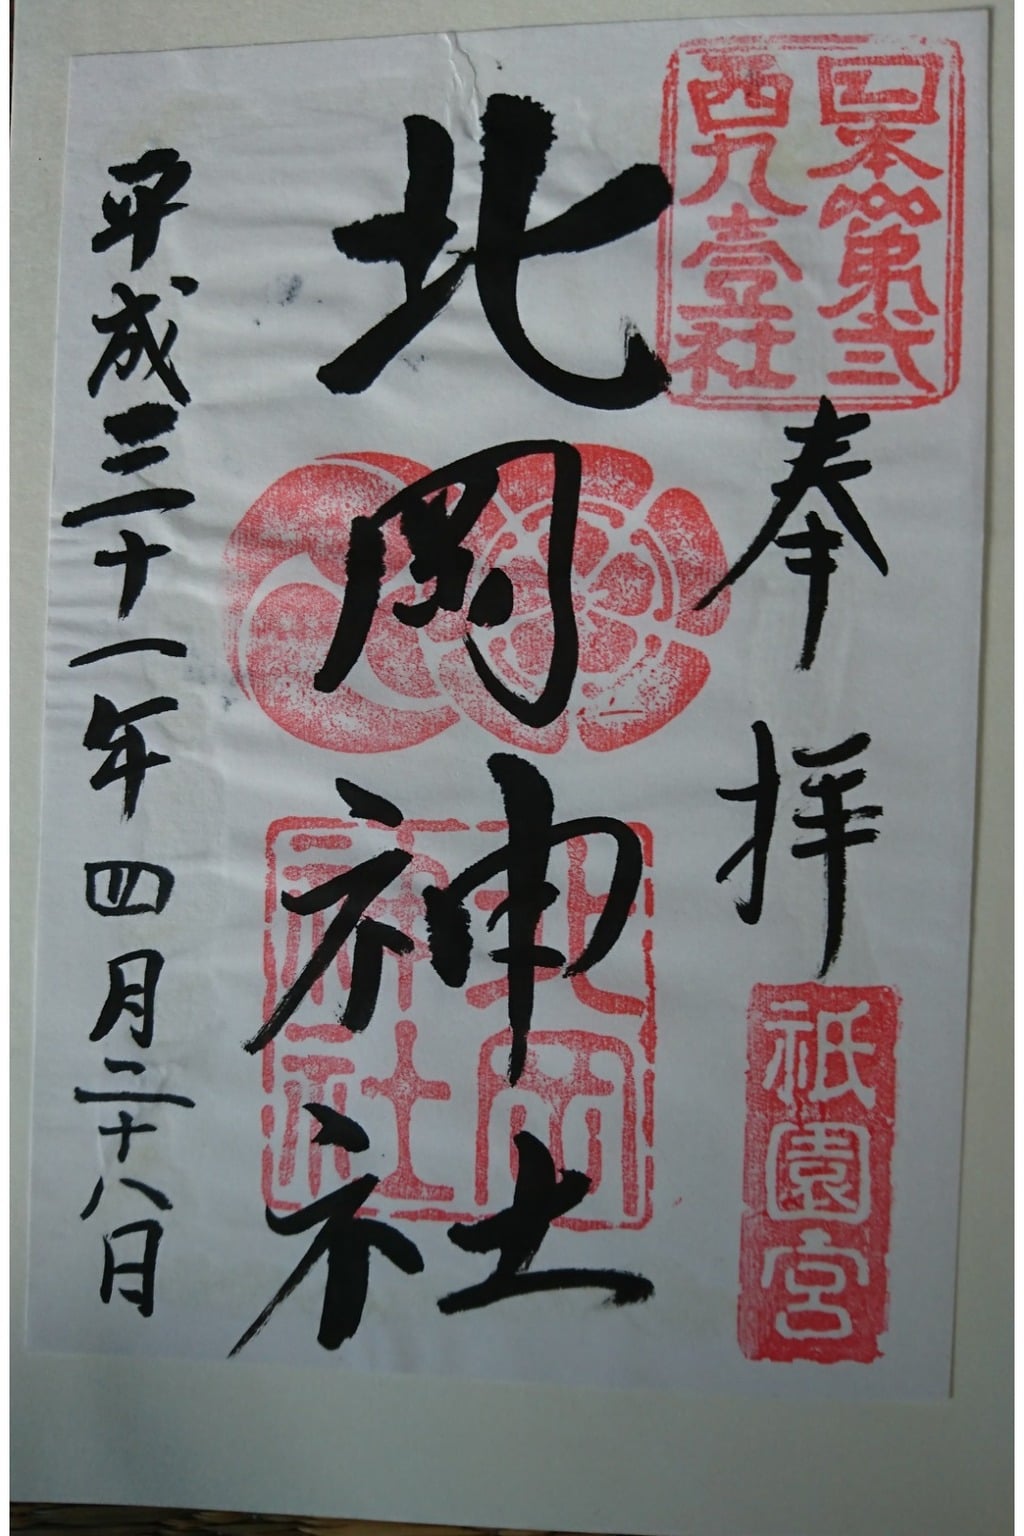 日本第弐
西九壹社
奉拝
祇園宮
北岡神社
北岡
神社
平成三十一年四月二十八日